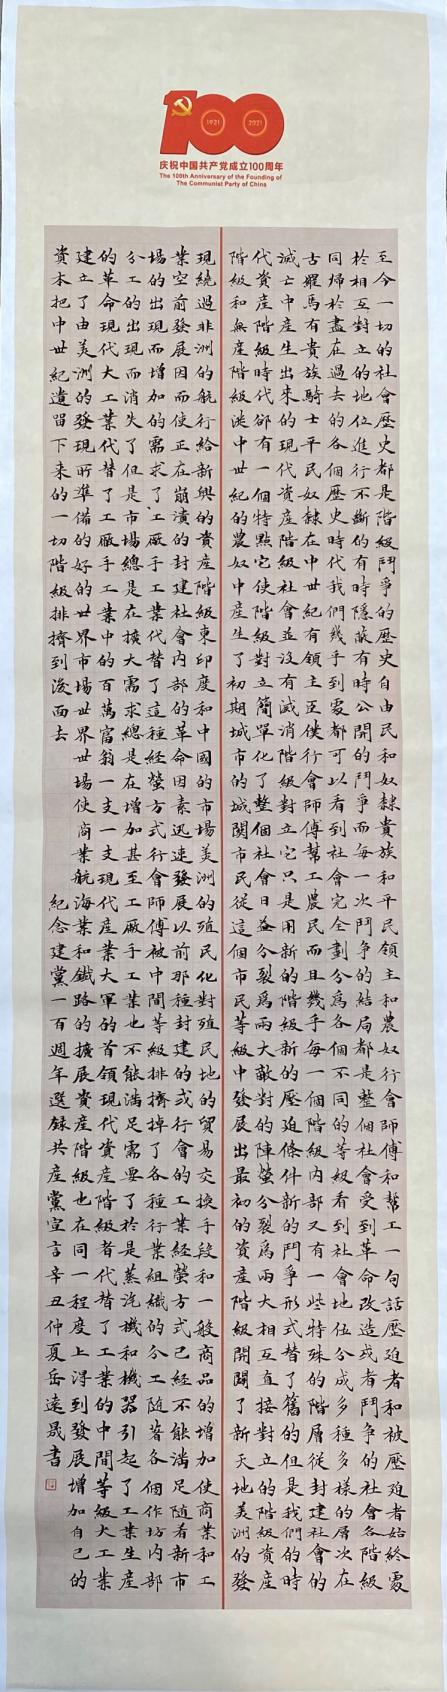 100
1921
2021
庆祝中国共产党成立100周年
The 100th Anniversary of the Founding of
The Communist Party of China
至今一切的社會歷史都是階級鬥爭的歷史自由民和奴隸貴族和平民領主和農奴行會師傅和幫工一句話壓迫者和被壓迫者始終處
於相互對立的地位進行不斷的有時隱蔽有時公開的鬥爭而每一次鬥爭的結局都是整個社會受到革命改造或者鬥爭的社會各階級
同歸於盡在過去的各個歷史時代我們幾乎到處都可以看到社會完全劃分為各個不同的等級看到社會地位分成多種多樣的層次在
古羅馬有貴族騎士平民奴隸在中世紀有領主臣僕行會師傅幫工農民而且幾乎每一個階級內部又有一些特殊的階層從封建社會的
滅亡中產生出來的現代資產階級社會並沒有滅消階級對立它只是用新的階級新的壓迫條件新的鬥爭形式替了舊的但是我們的時
代資產階級時代卻有一個特點它使階級對立簡單化了整個社會日益分裂為兩大敵對的陣營分裂為兩大相互直接對立的階級資產
階級和無產階級從中世紀的農奴中產生了初期城市的城關市民從這個市民等級中發展出最初的資產階級開闢了新天地美洲的發
現繞過非洲的航行給新興的資產階級東印度和中國的市場美洲的殖民化對殖民地的貿易交換手段和一般商品的增加使商業和工
業空前發展因而使正在崩潰的封建社會內部的革命因素迅速發展以前那種封建的或行會的工業經營方式已經不能滿足隨着新市
場的出現而增加的需求了工廠手工業代替了這種經營方式行會師傅被中間等級排擠掉了各種行業組織的分工隨着各個作坊內部
分工的出現而消失了但是市場總是在擴大需求總是在增加甚至工廠手工業也不能滿足需要了於是蒸汽機和機器引起了工業生產
的革命現代大工業代替了工廠手工業中的百萬富翁一支一支現代產業大軍的首領現代資產階級者代替了工業的中間等級大工業
建立了由美洲的發現所準備的好的世界市場世界世場使商業航海業和鐵路的擴展資產階級也在同一程度上得到發展增加自己的
資本把中世紀遺留下來的一切階級排擠到後面去 紀念建黨一百週年選錄共產黨宣言辛丑仲夏岳遠晟書